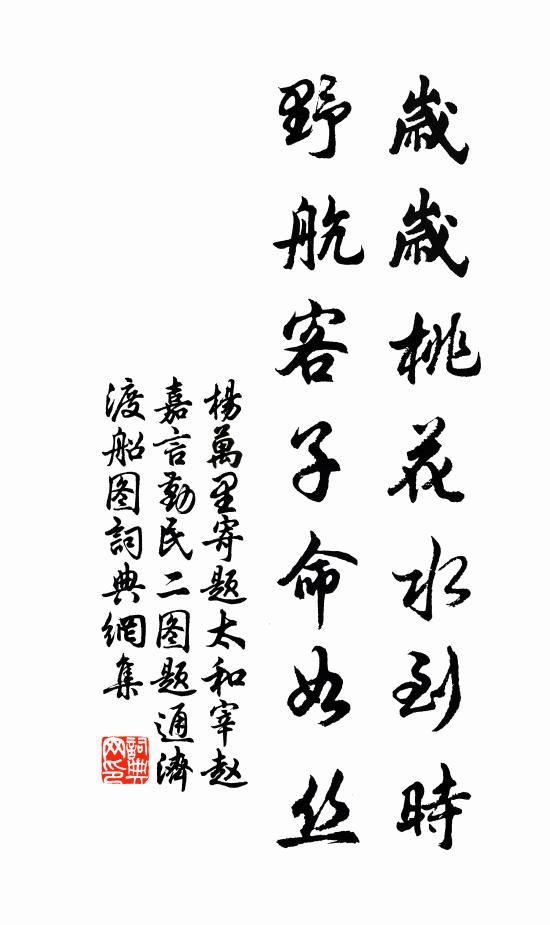 歲歲桃花水到時
野航客子命如丝
楊萬里寄题太和宰赵
嘉言勤民二图题通濟
渡船图詞典網集
詞典
网印